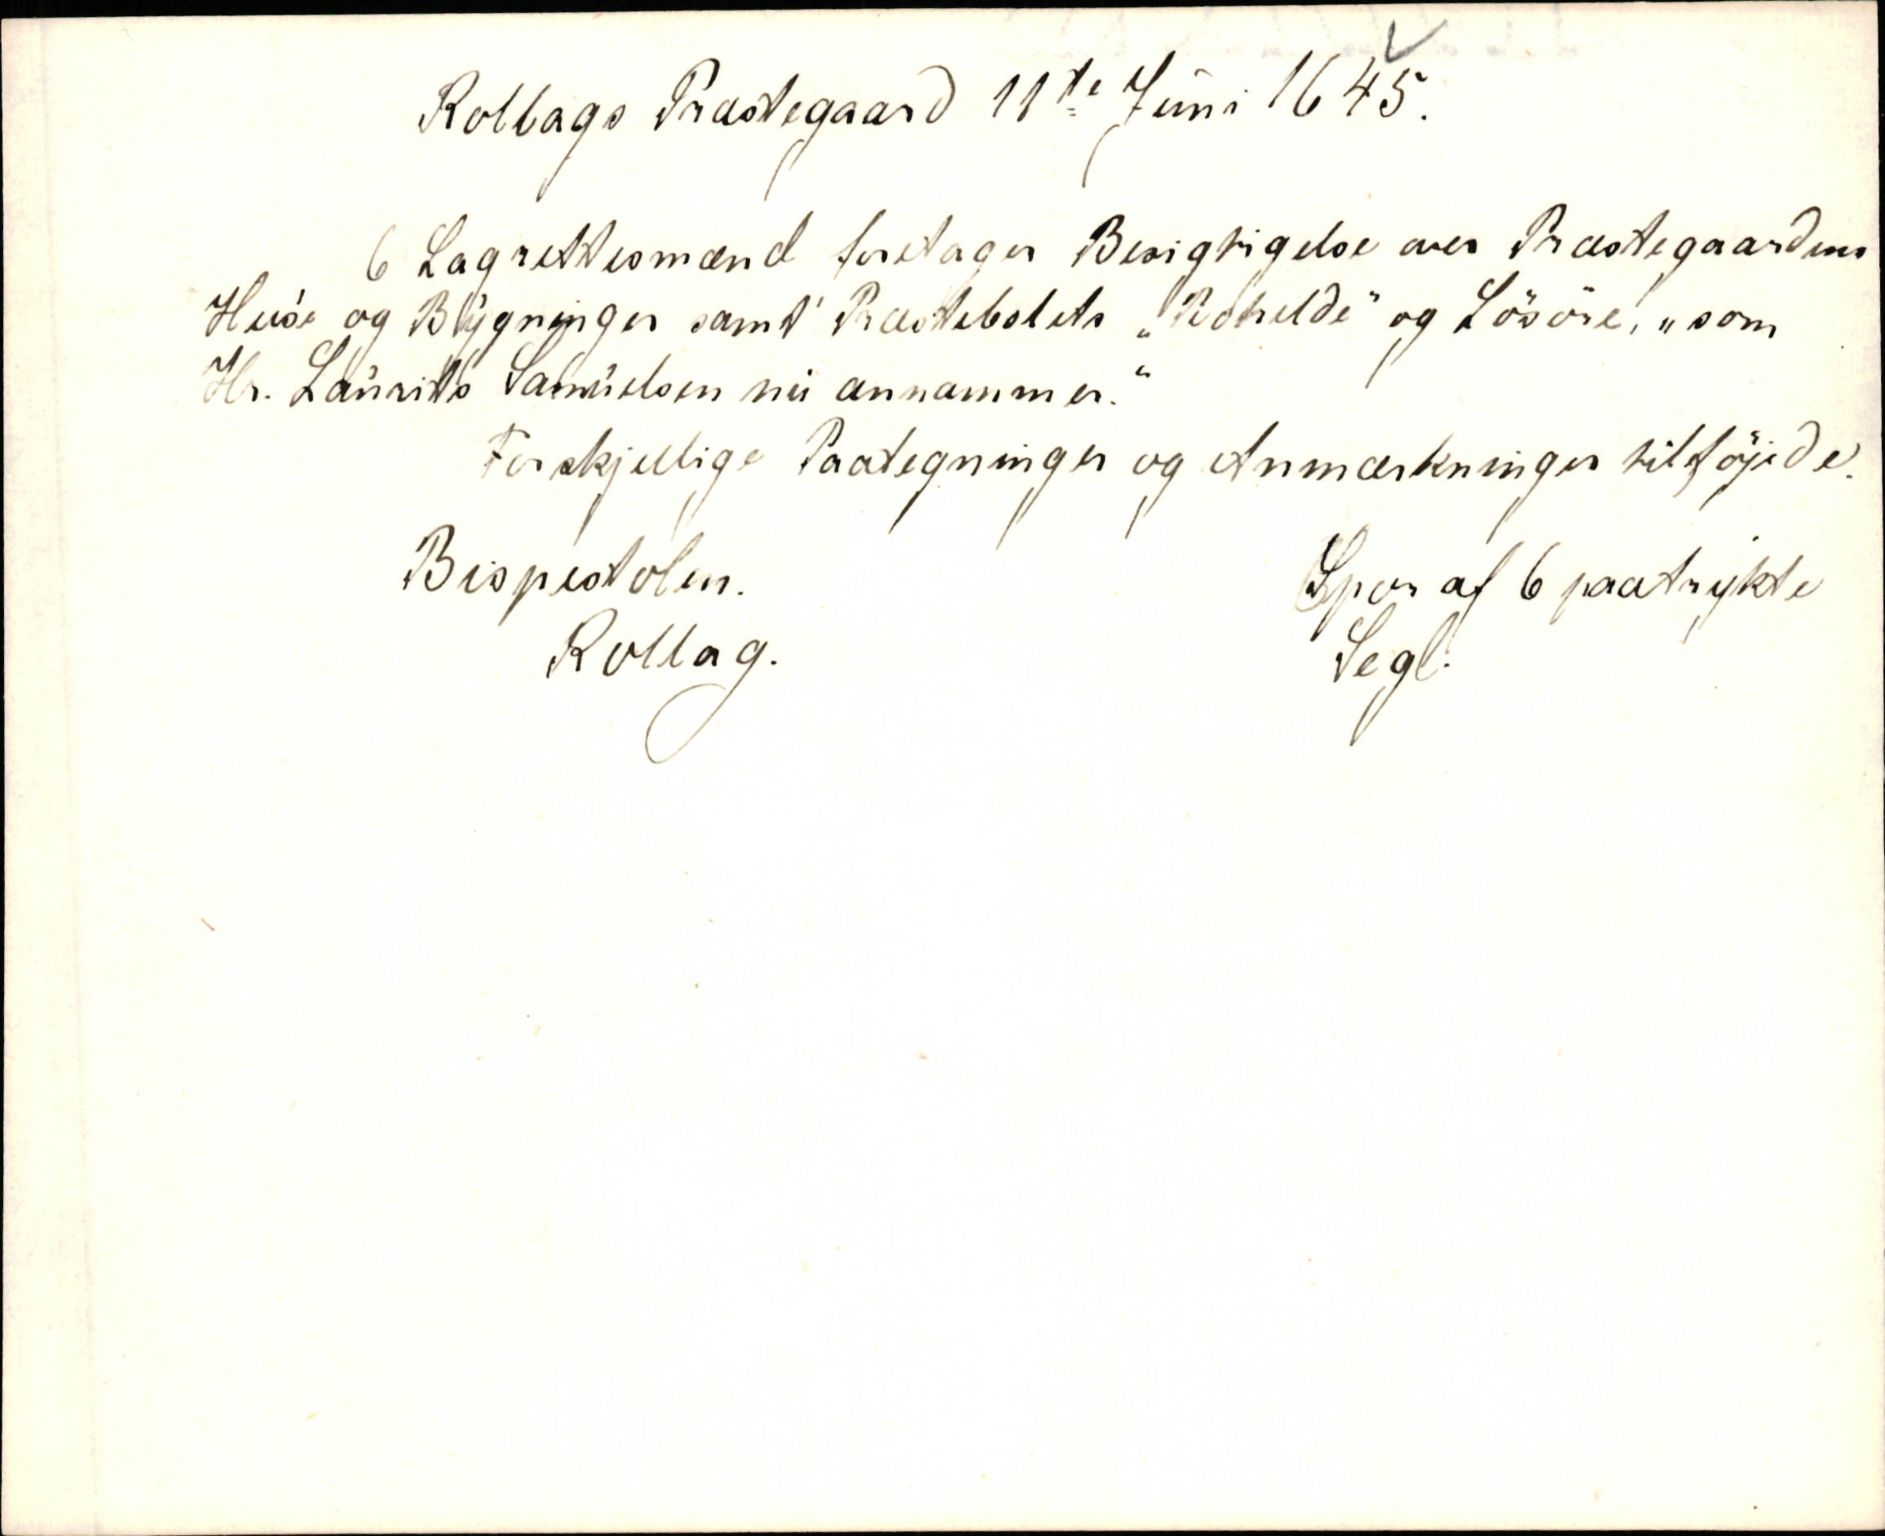 Rollags Præstegaard 11te Juni 1645.
6 Lagrettesmænd foretager Besigtigelse over Præstegaardens
Huse og Bygninger samt Præstebolets „Bohelde“ og Lösöre, „som
Hr. Laurits Samuelsen nu annammer.“
Forskjellige Paategninger og Anmærkninger tilföjede.
Bispestolen.
Rollag.
Spor af 6 paatrykte
Segl.